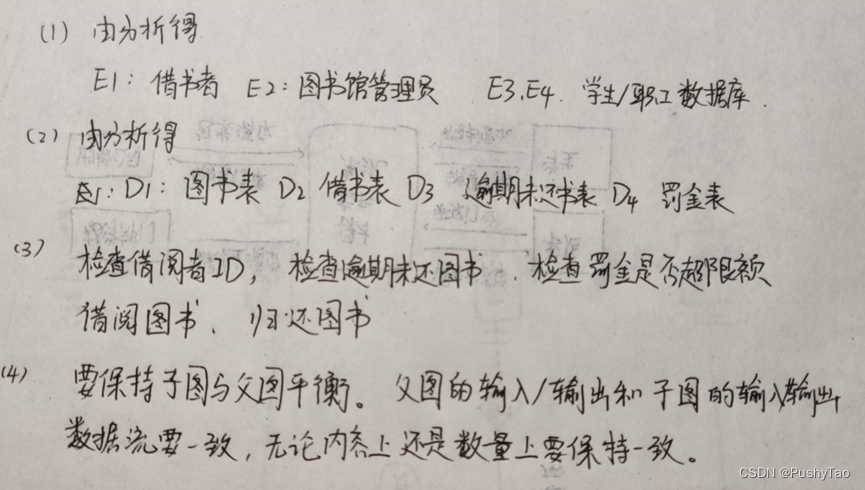 (1) 由分析得
E1: 借书者 E2: 图书馆管理员 E3、E4. 学生/职工数据库.
(2) 由分析得
D1: 图书表 D2 借书表 D3 逾期未还书表 D4 罚金表
(3) 检查借阅者ID, 检查逾期未还图书、检查罚金是否超限额
借阅图书、归还图书
(4) 要保持子图与父图平衡。父图的输入/输出和子图的输入/输出
数据流要一致,无论内容上还是数量上要保持一致。
CSDN @PushyTao